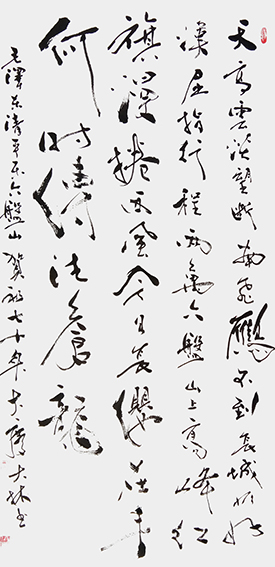 天高雲淡望斷南飛鴈不到長城非好
漢屈指行程兩萬六盤山上高峰紅
旗漫捲西風今日長纓在手
何時縛住蒼龍
毛澤东清平乐六盤山 賀 七十年 大林书